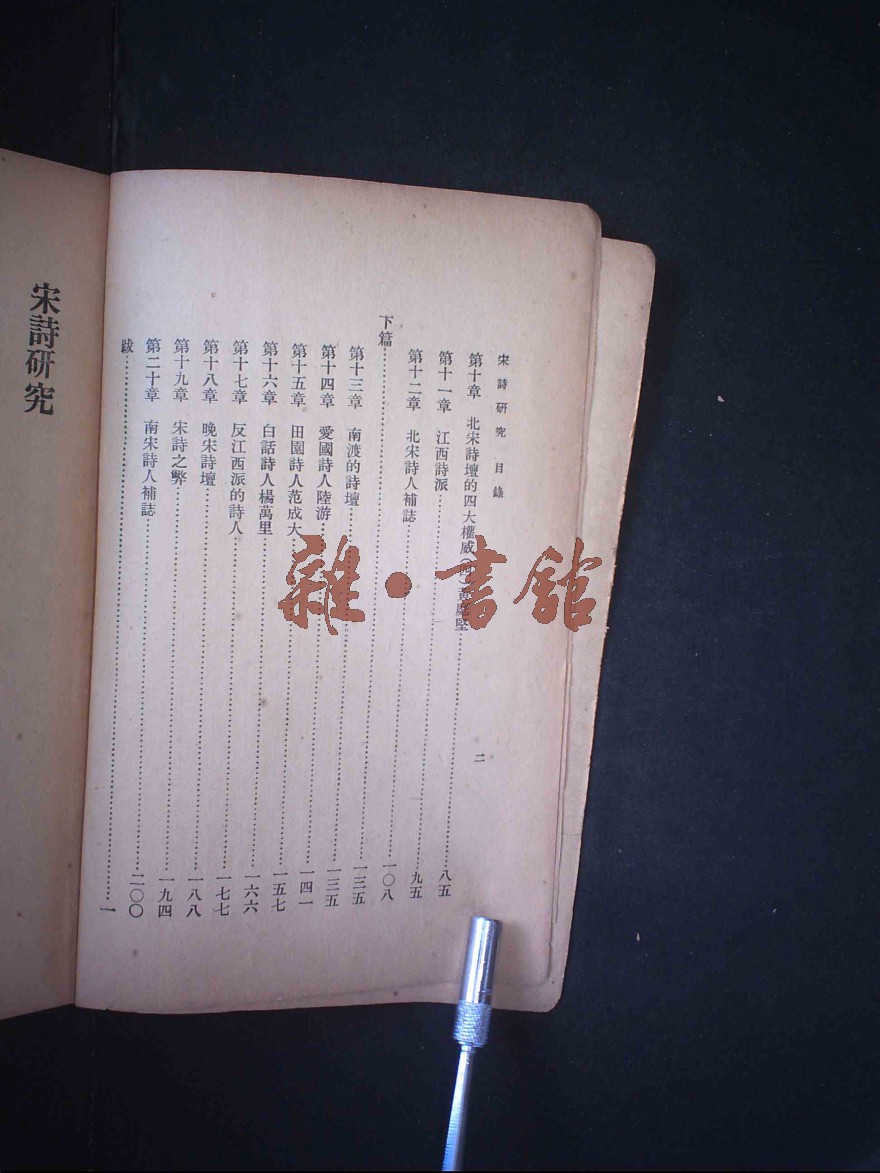 宋詩研究 目錄
二
第十章 北宋詩壇的四大權威……八五
第十一章 江西詩派……九五
第十二章 北宋詩人補誌……一〇八
下篇……一三五
第十三章 南渡的詩壇……一三五
第十四章 愛國詩人陸游……一四一
第十五章 田園詩人范成大……一五七
第十六章 白話詩人楊萬里……一六六
第十七章 反江西派的詩人……一七七
第十八章 晚宋詩壇……一八八
第十九章 宋詩之弊……一九四
第二十章 南宋詩人補誌……二〇〇
跋……一
宋詩研究
雜·書館